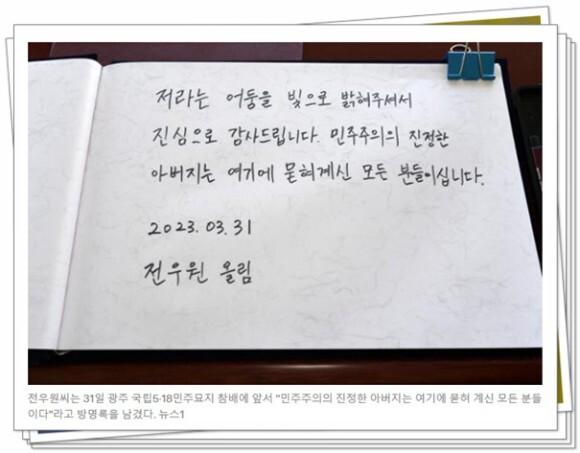 저라는 어둠을 빛으로 밝혀주셔서
진심으로 감사드립니다. 민주주의의 진정한
아버지는 여기에 묻혀계신 모든 분들이십니다.
2023.03.31
전우원 올림
전우원씨는 31일 광주 국립5·18민주묘지 참배에 앞서 "민주주의의 진정한 아버지는 여기에 묻혀 계신 모든 분들
이다"라고 방명록을 남겼다. 뉴스1